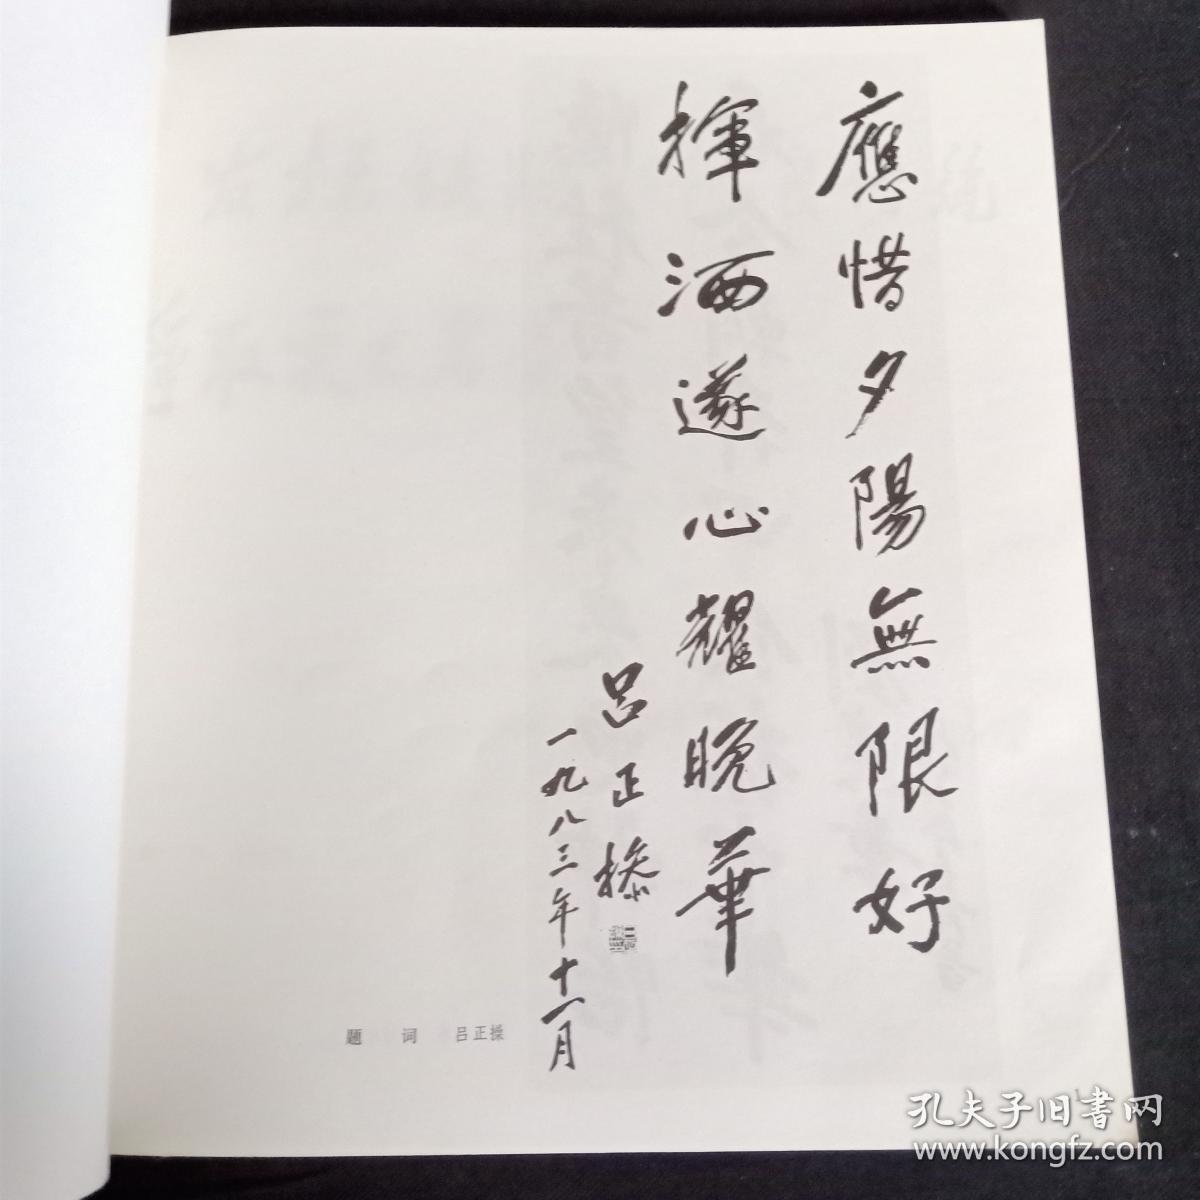 應惜夕陽無限好
揮洒遂心耀晚華
吕正操
一九八三年十一月
题 词 吕正操
孔夫子旧书网
www.kongfz.com